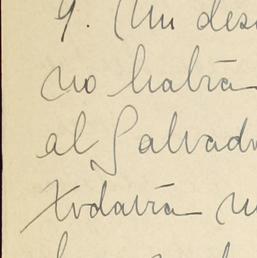 9. Un des
no habían
al Salvad
Todavía